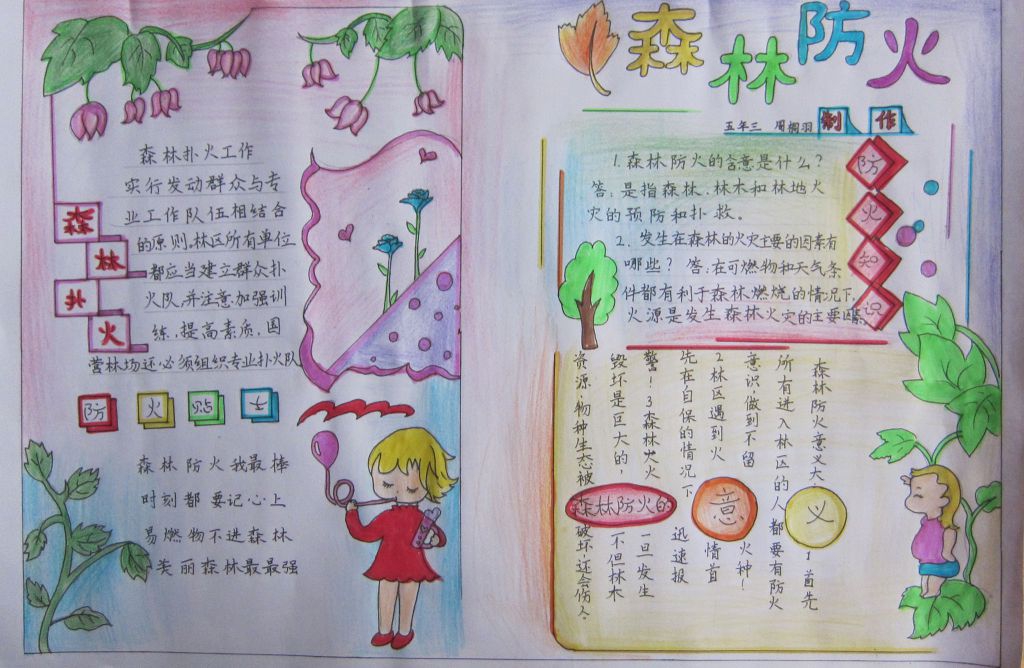 森林防火
五年三 周桐羽 制作
森林扑火工作
实行发动群众与专
业工作队伍相结合
的原则,林区所有单位
都应当建立群众扑
火队,并注意加强训
练,提高素质,国
营林场还必须组织专业扑火队
森林扑火
防火贴士
森林防火我最棒
时刻都要记心上
易燃物不进森林
美丽森林最最强
防火知识
1.森林防火的含意是什么?
答:是指森林、林木和林地火
灾的预防和扑救。
2、发生在森林的火灾主要的因素有
哪些? 答:在可燃物和天气条
件都有利于森林燃烧的情况下,
火源是发生森林火灾的主要因素
森林防火的意义
森林防火意义大
1首先
所有进入林区的人都要有防火
意识做到不留火种!
2林区遇到火情首
先在自保的情况下迅速报
警!3森林火火一旦发生
毁坏是巨大的,不但林木
资源,物种生态被破坏,还会伤人。